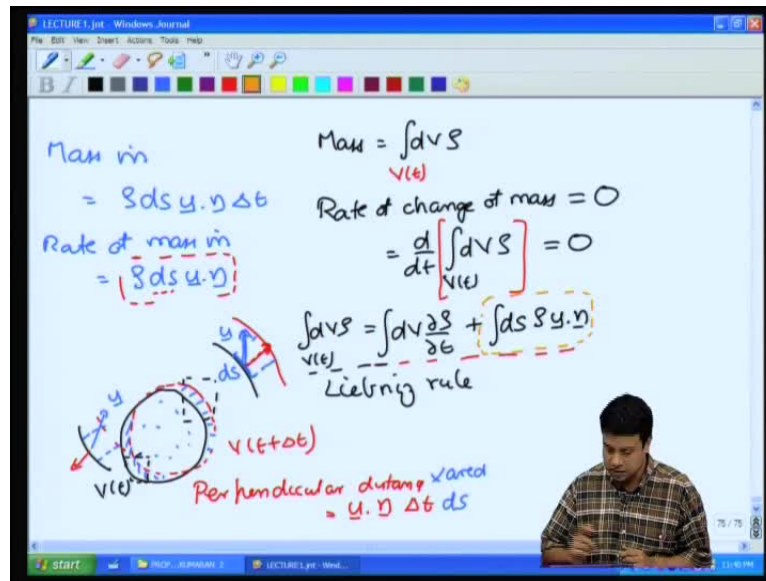 LECTURE1.jnt - Windows Journal
File Edit View Insert Actions Tools Help
B I
Mass in
= ρ ds u.n Δt
Rate of mass in
= ρ ds u.n
Mass = ∫dV ρ
V(t)
Rate of change of mass = 0
= d/dt [∫dV ρ] = 0
V(t)
∫dVρ = ∫dV ∂ρ/∂t + ∫ds ρ u.n
V(t)
Liebniz rule
u
ds
u
V(t+Δt)
V(t)
Perpendicular distance x area
= u.n Δt ds
75 / 75
start
LECTURE1.jnt - Wind...
11:40 PM